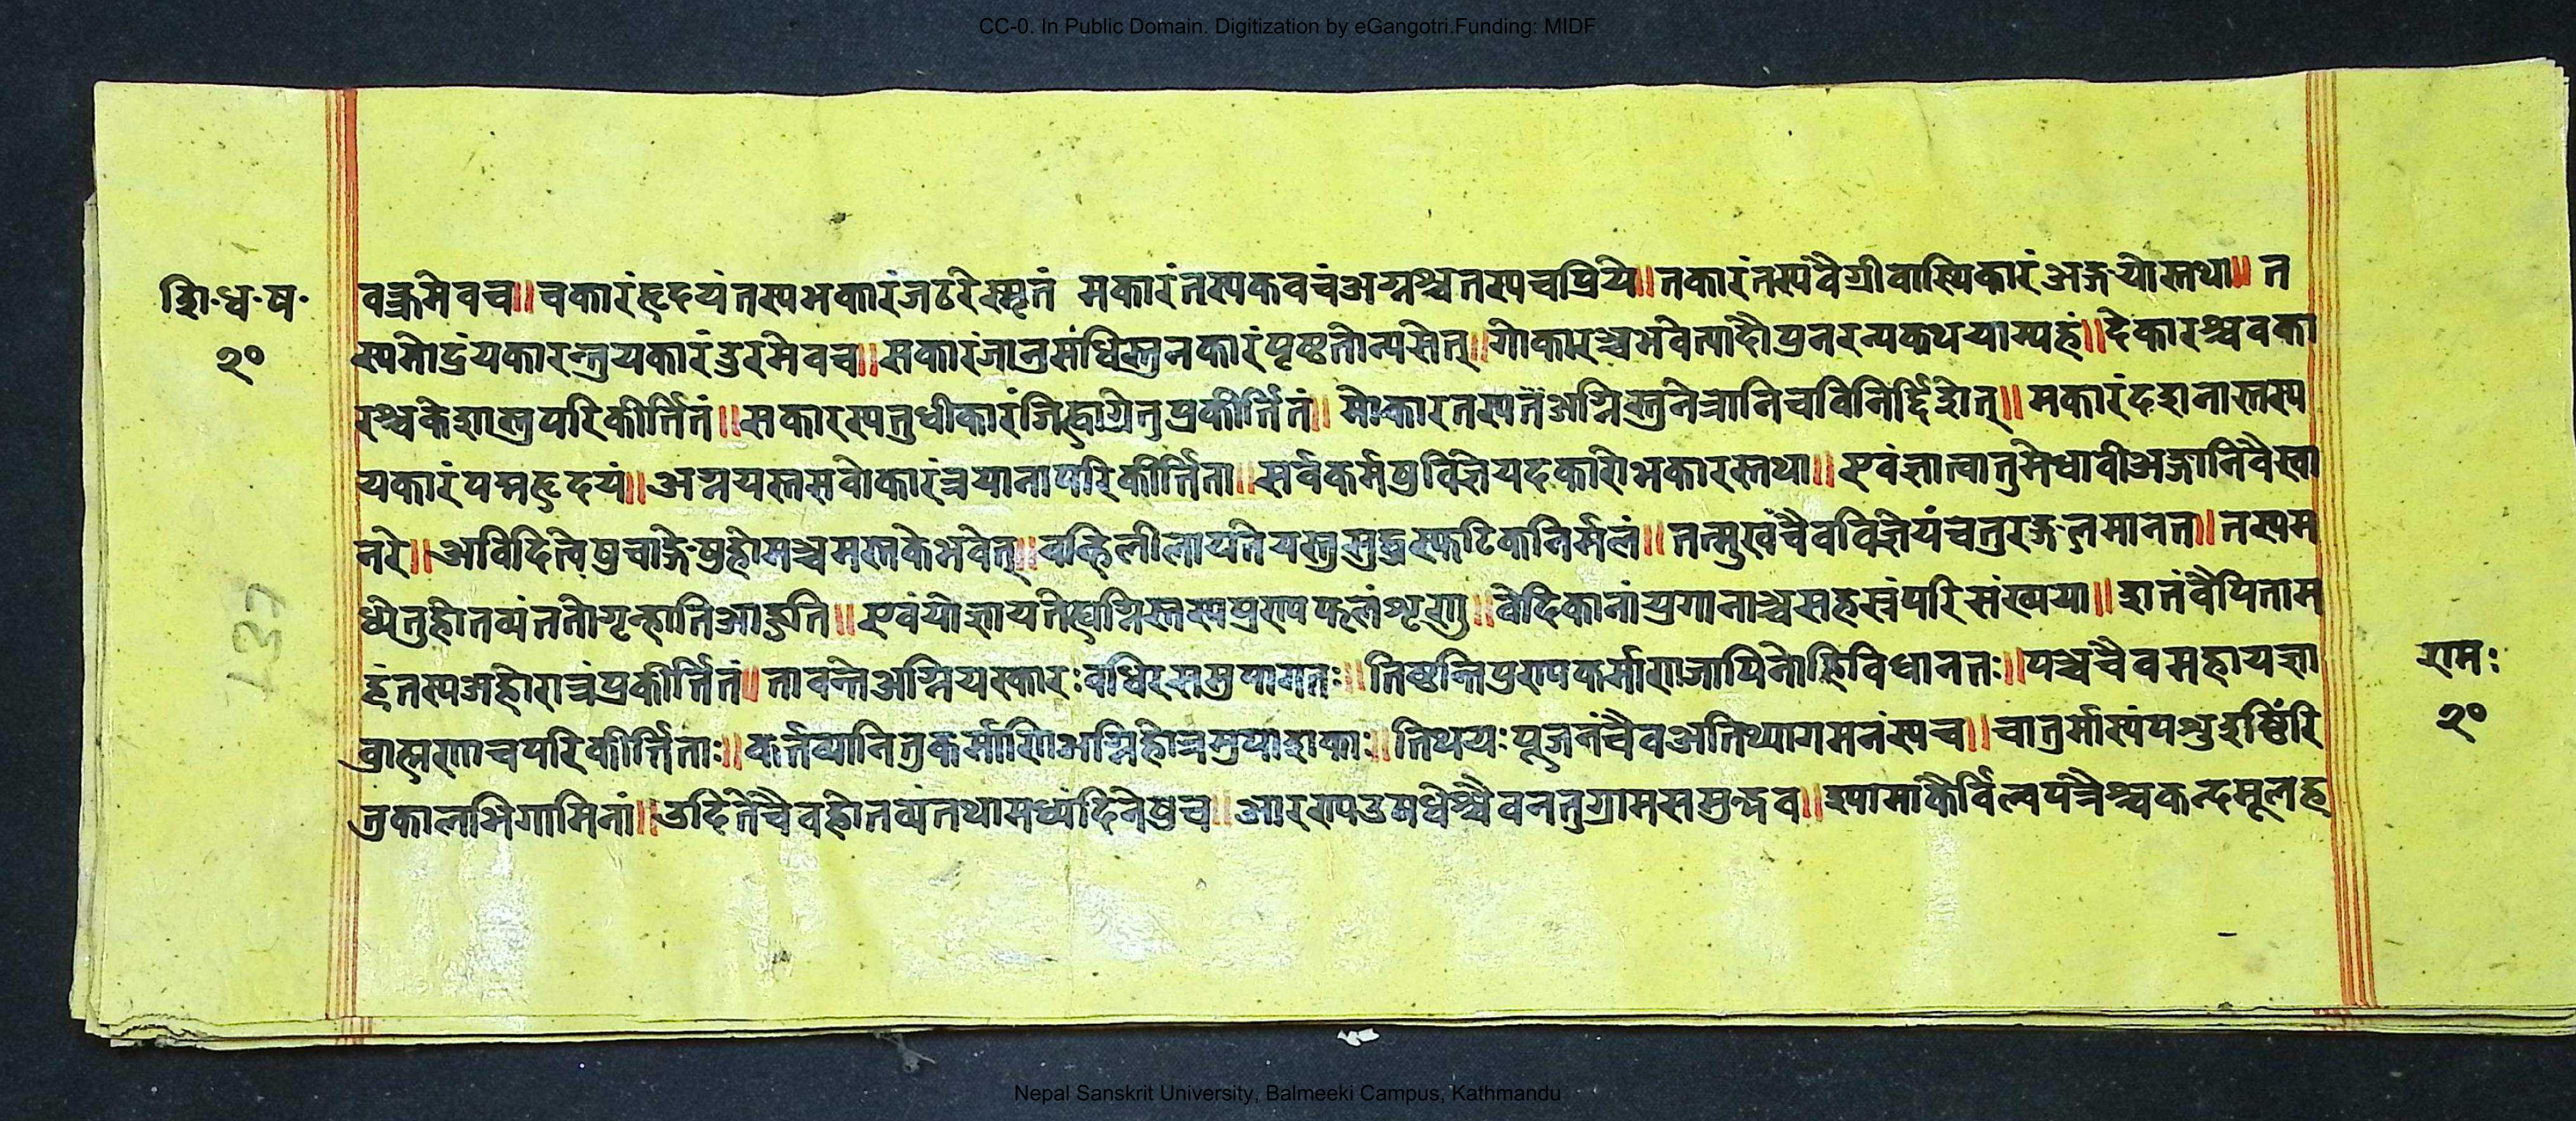 CC-0. In Public Domain. Digitization by eGangotri.Funding: MIDF
शि॰ध॰ष॰
२०
वक्त्रमेवच॥चकारंहृदयंतस्यभकारंजठरेस्मृतं मकारंतस्यकवचंअग्नश्चतस्यचप्रिये॥तकारंतस्यवैग्रीवास्यिकारंअङ्गयोस्तथा॥ त
यकारन्तुयकारंडुरमेवच॥सकारंजानुसंधिस्तुनकारंपृष्ठतोन्यसेत्॥गोकारश्चभवेत्पादौपुनरन्यकथयाम्यहं॥देकारश्चवका
रश्चकेशास्तुपरिकीर्त्तितं॥सकारस्यतुधीकारंजिह्वाग्रेतुप्रकीर्त्तितं॥ मोकारतस्यतंअग्निस्तुनेत्रानिचविनिर्द्दिशेत्॥मकारंदशनास्तस्य
यकारंपद्महृदयं॥अग्नयस्तसवोकारंत्रयानापरिकीर्त्तिता॥सर्वकर्मषुविज्ञेयदकारोभकारस्तथा॥एवंज्ञात्वातुमेधावीअङ्गानिवैस्वा
नरे॥अविदिलेषुचाङ्गेषुहोमश्चमस्तकेभवेत्॥वह्निलीलायतेयस्तुसुद्धस्फटिकनिर्मलं॥तन्मुखंचैवविज्ञेयंचतुरङ्गुलमानत॥तस्यम
ध्येतुहोतव्यंततोगृन्हातिआहुति॥एवंयोज्ञायतेह्यग्निस्तस्यपुण्यफलंशृणु॥वेदिकानांयुगानाञ्चसहस्रंपरिसंख्यया॥शतंवैपिताम
हंतस्यअहोरात्रंप्रकीर्त्तितं॥तावन्तेअग्नियस्कारःवधिरससमुपागतः॥तिष्ठन्तिपुण्यकर्माणाजापिनोहिविधानतः॥पञ्चचैवमहायज्ञा
ब्राह्मणाचपरिकीर्त्तिताः॥कर्त्तव्यानितुकर्माणिअग्निहोत्रमुपाशकाः॥तिथयःपूजनंचैवअतिथ्यागमनंस्यच॥चातुर्मास्यंपशुइष्टिंरि
तुकालभिगामिनां॥उदितेचैवहोतव्यंतथामध्यंदिनेषुच॥आरण्यउमधेश्चैवनतुग्रामसमुन्द्भव॥स्यामाकैर्विल्वपत्रैश्चकन्दमूलह
रामः
२०
Nepal Sanskrit University, Balmeeki Campus, Kathmandu